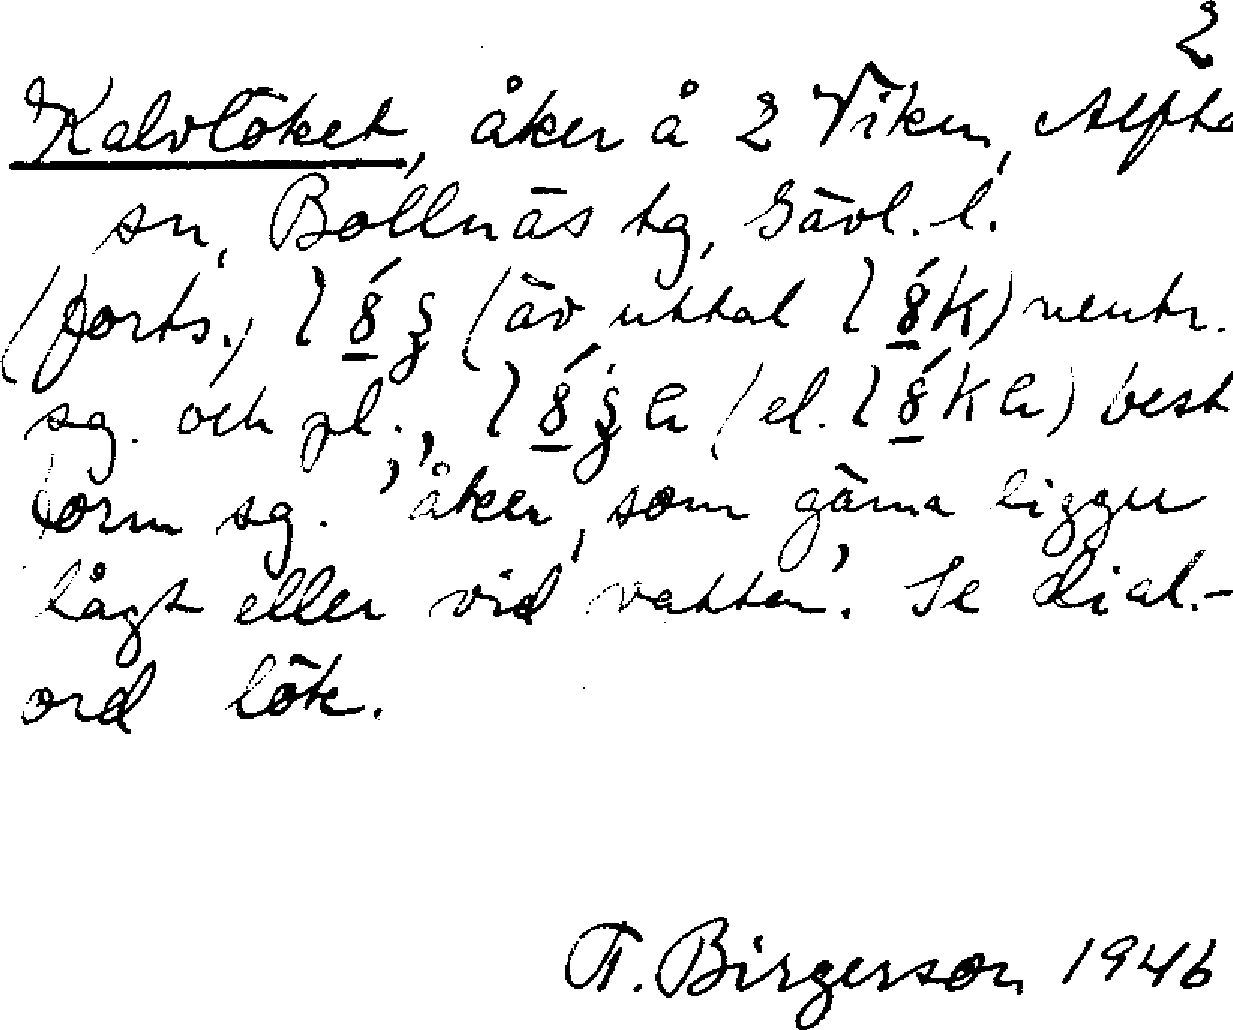 2
Kalvlöket, åker å 2 Viken, Alfta
sn, Bollnäs tg, Gävl. l.
(forts.)
(äv uttal neutr.
sg. och pl., (el. best
form sg. 'åker, som gärna ligger
lågt eller vid vatten'. Se dial.-
ord lök.
T. Birgerson 1946